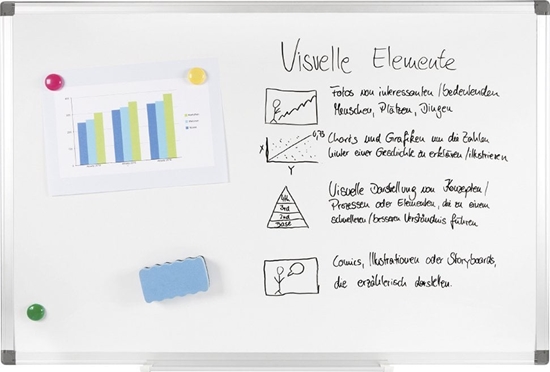 Visuelle Elemente
Fotos von interessanten/bedeutenden
Menschen, Plätzen, Dingen
0,75
X
Y
Charts und Grafiken um die Zahlen
hinter einer Geschichte zu erklären/illustrieren
4th
3rd
2nd
Base
Visuelle Darstellung von Konzepten/
Prozessen oder Elementen, die zu einem
schnelleren/besseren Verständnis führen
Comics, Illustrationen oder Storyboards,
die erzählerisch darstellen.